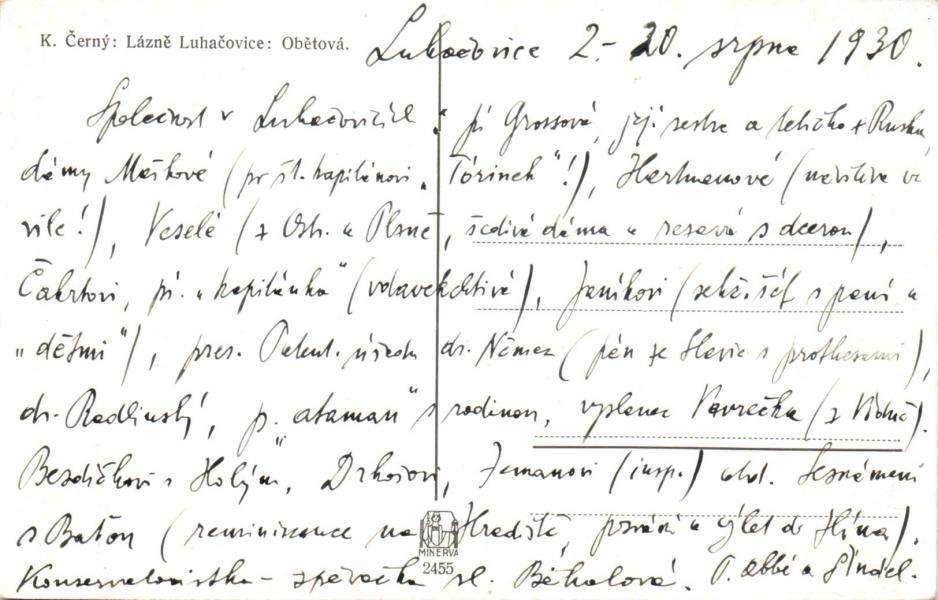 K. Černý: Lázně Luhačovice: Obětová.
Luhačovice 2.-20. srpna 1930.
Společnost v Luhačovicích: pí Grossová, její sestra a tetička z Ruska,
dámy Maškové (pr št. kapitánovi „Tórinek"!), Hartmanové (
vile!), Veselé (z Ostr. a Plzně, šedivá dáma a s dcerou),
Čakrtovi, pí. „kapitánka" (vdavekchtivá), Janíkovi (s paní a
„dětmi"), pres. Patent. úřadu dr. Němec (pán ze Slavie s prothesami),
dr. Radlinský, p. „ataman" s rodinou, Vavrečka (z Vídně).
Bezdíčkovi s Holým, Drhovi, Zemanovi (insp.) atd. Seznámení
s Baťou (reminiscence na Hradiště, pozvání a výlet do Zlína).
Konservatoristka - zpěvačka sl. Běhalová. P. abbé a
MINERVA
2455